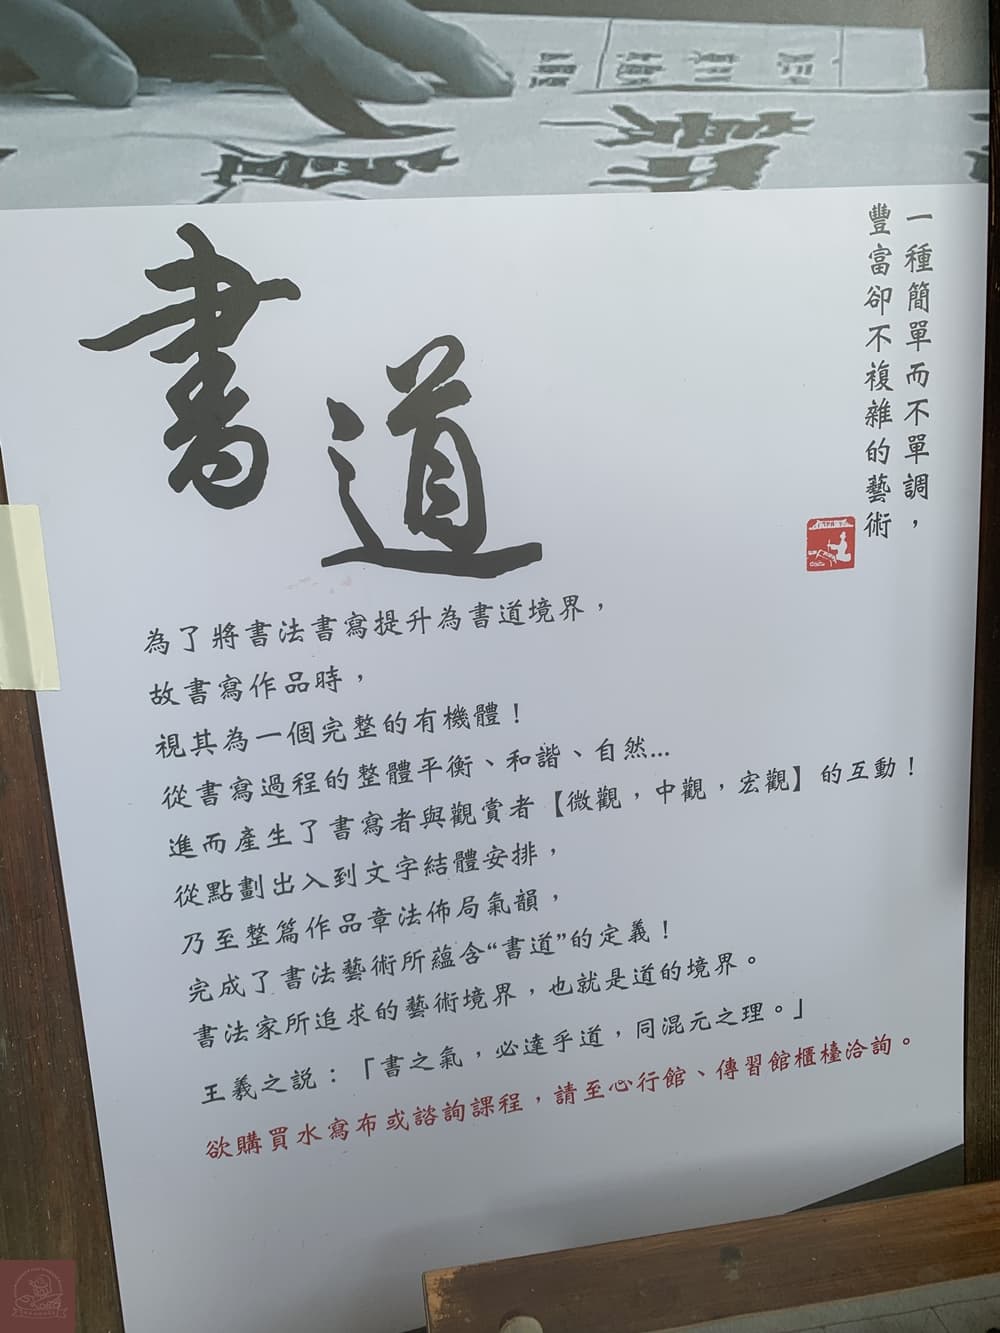 書道
一種簡單而不單調，
豐富卻不複雜的藝術
為了將書法書寫提升為書道境界，
故書寫作品時，
視其為一個完整的有機體！
從書寫過程的整體平衡、和諧、自然...
進而產生了書寫者與觀賞者【微觀，中觀，宏觀】的互動！
從點劃出入到文字結體安排，
乃至整篇作品章法佈局氣韻，
完成了書法藝術所蘊含“書道”的定義！
書法家所追求的藝術境界，也就是道的境界。
王羲之說：「書之氣，必達乎道，同混元之理。」
欲購買水寫布或諮詢課程，請至心行館、傳習館櫃檯洽詢。